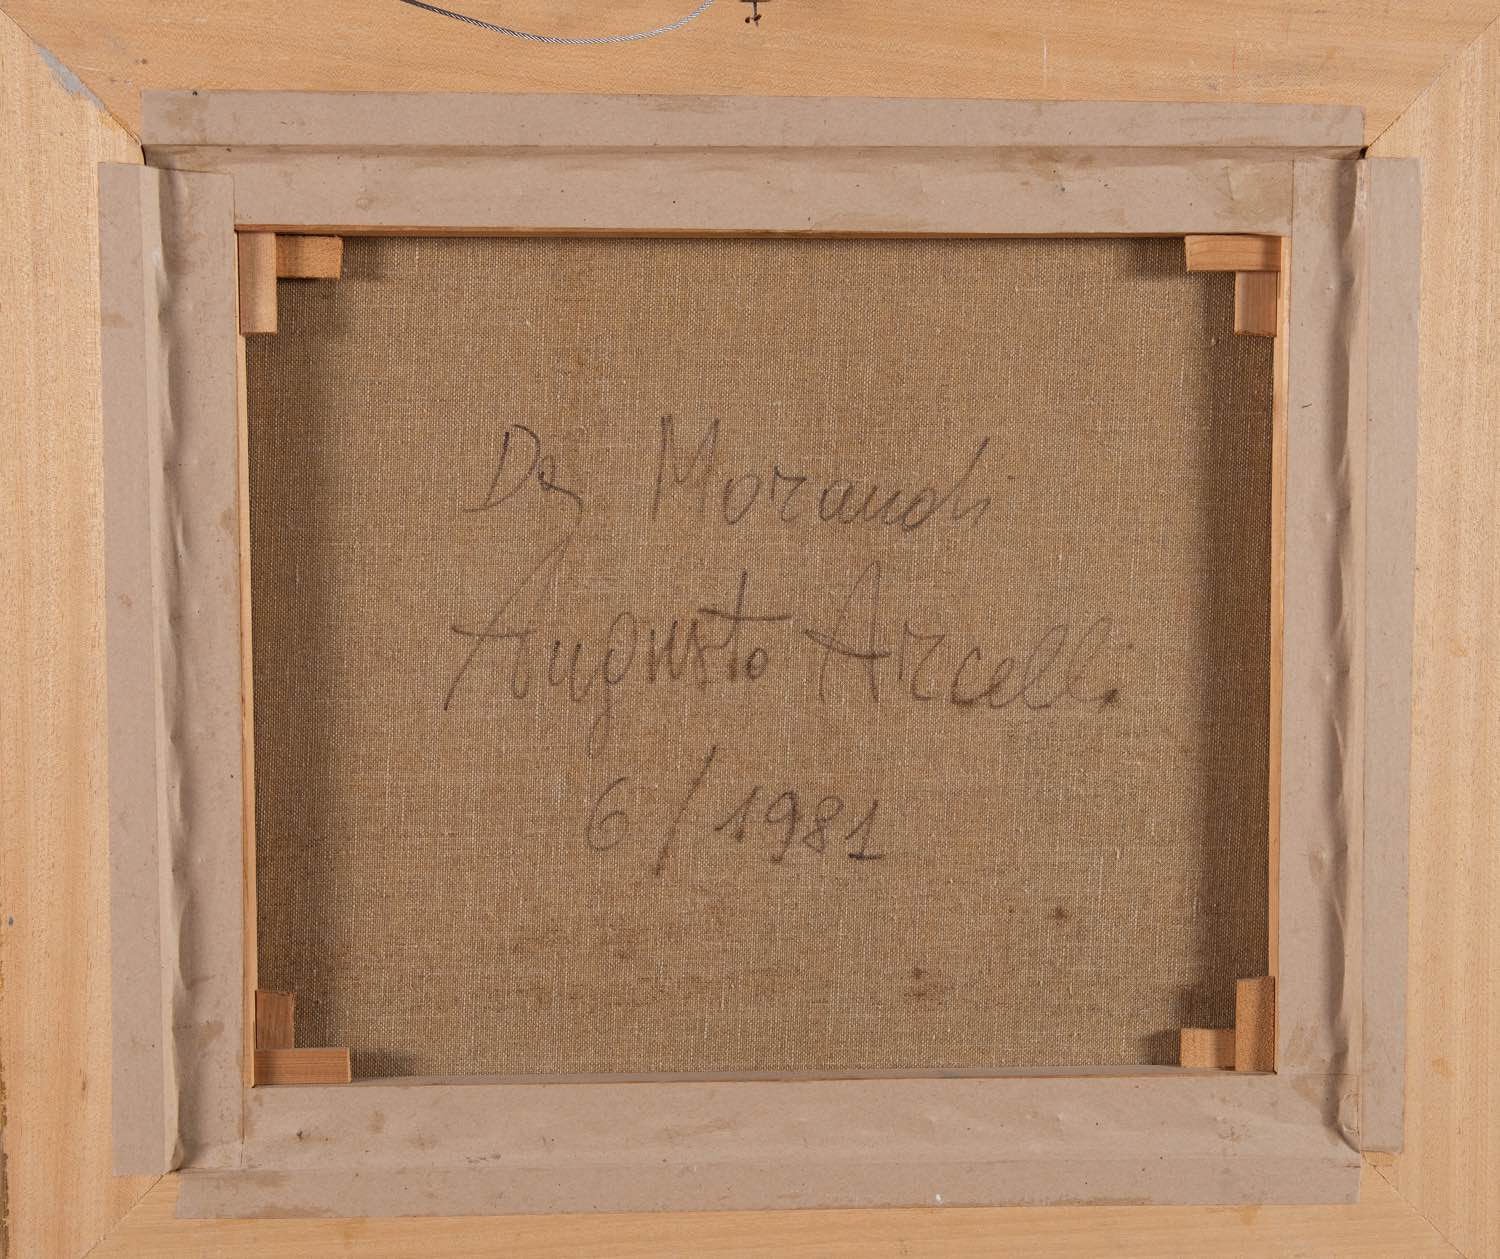 Da Morandi
Augusto Arcelli
6/1981